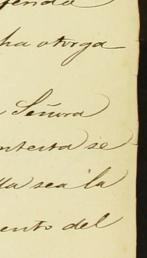 ha otorga
Señora
ntesta se
lla sea la
ento del